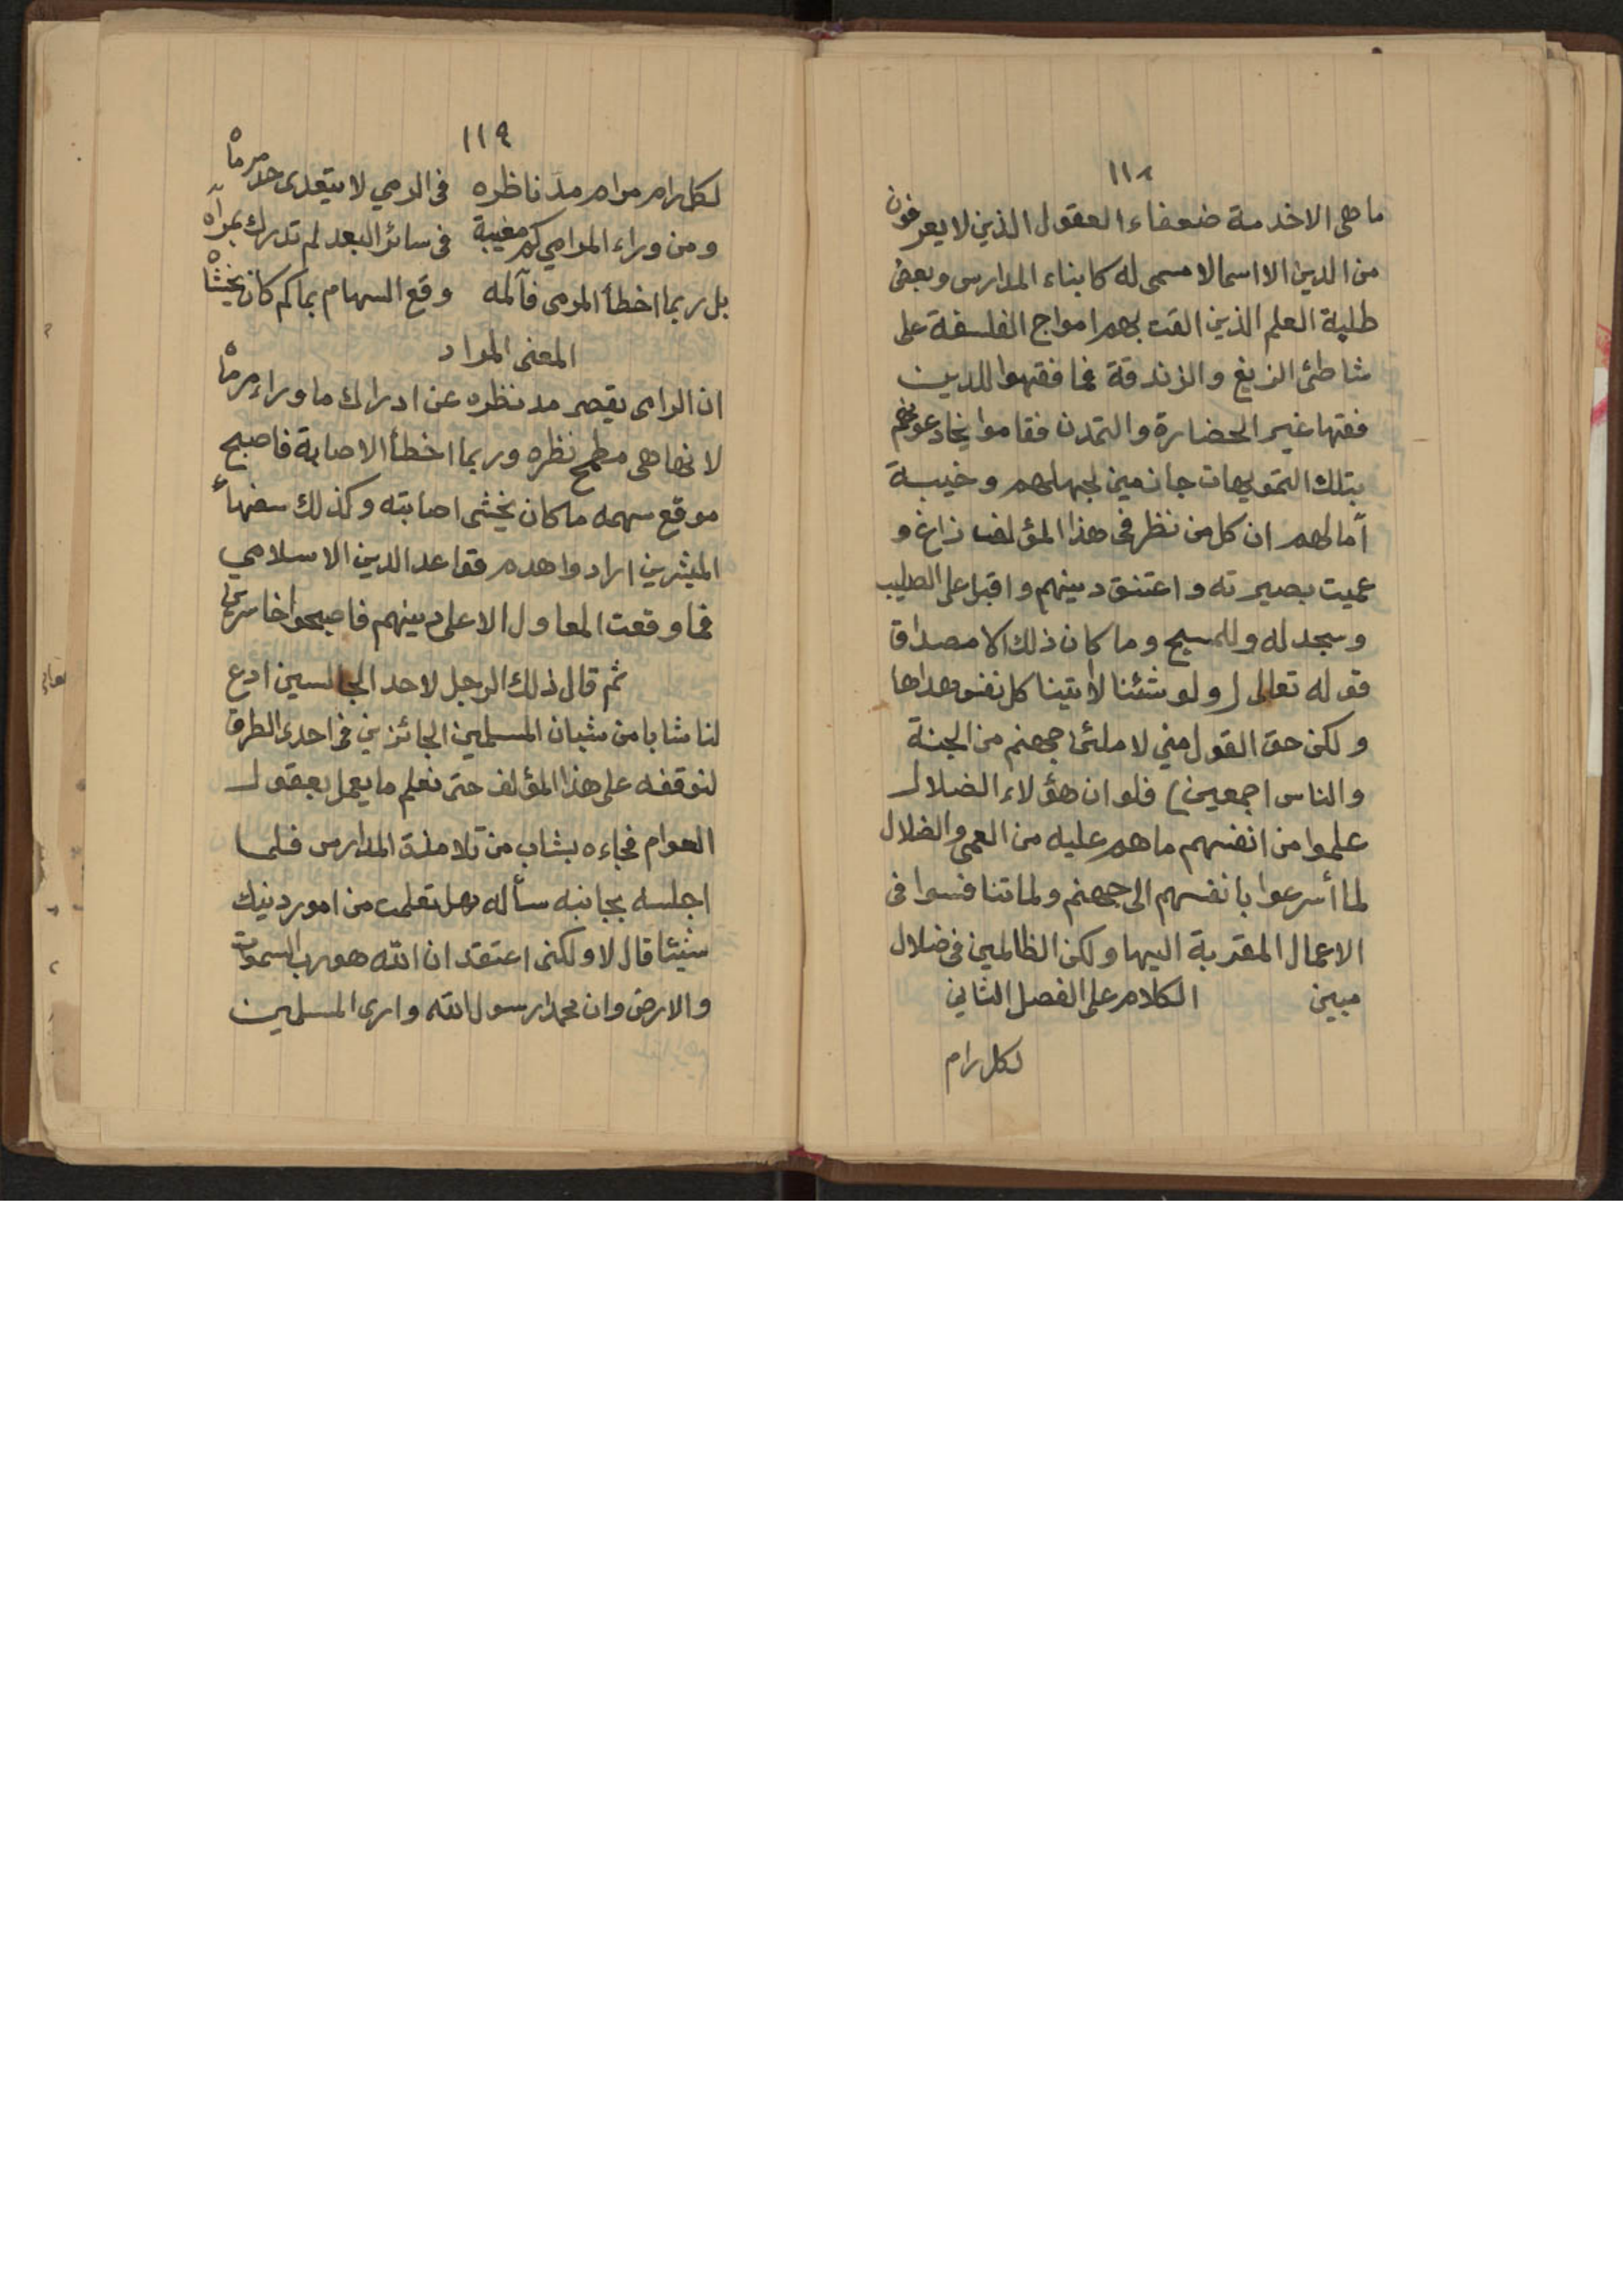 ١١٨
ما هى الا خدمة ضعفاء العقول الذين لا يعرفون
من الدين الا اسما لا مسمى له كابناء المدارس وبعض
طلبة العلم الذين القت بهم امواج الفلسفة على
شاطئ الزيغ والزندقة فما فقهوا للدين
فقها غير الحضارة والتمدن فقاموا يخادعونهم
بتلك التمويهات جازمين لجهلهم وخيبة
آمالهم ان كل من نظر فى هذا المؤلف زاغ و
عميت بصيرته واعتنق دينهم واقبل على الصليب
وسجد له وللمسيح وما كان ذلك الا مصداق
قوله تعالى (ولو شئنا لأتينا كل نفس هداها
ولكن حق القول مني لاملئن جهنم من الجنة
والناس اجمعين) فلو ان هؤلاء الضلال
علموا من انفسهم ما هم عليه من العمى والضلال
لما أسرعوا بانفسهم الى جهنم ولما تنافسوا فى
الاعمال المقربة اليها ولكن الظالمين فى ضلال
مبين الكلام على الفصل الثاني
لكل رام
١١٩
لكل رام مرام مدّ ناظره فى الرمي لا يتعدى حد مرماه
ومن وراء المرامي كم مغيبة فى سائر البعد لم تدرك بمرآه
بل ربما اخطأ المرمى فآلمه وقع السهام بما كم كان يخشاه
المعنى المراد
ان الرامى يقصر مد نظره عن ادراك ما وراء مرماه
لانها هى مطمح نظره وربما اخطأ الاصابة فاصبح
موقع سهمه ما كان يخشى اصابته وكذلك سفهاء
المبشرين ارادوا هدم قواعد الدين الاسلامي
فما وقعت المعاول الا على دينهم فاصبحوا خاسرين
ثم قال ذلك الرجل لاحد الجالسين ادع
لنا شابا من شبان المسلمين الجائزين فى احدى الطرق
لنوقفه على هذا المؤلف حتى نعلم ما يعمل بعقول
العوام فجاءه بشاب من تلامذة المدارس فلما
اجلسه بجانبه سأله هل تعلمت من امور دينك
شيئا قال لا ولكنى اعتقد ان الله هو رب السموات
والارض وان محمدا رسول الله وارى المسلمين